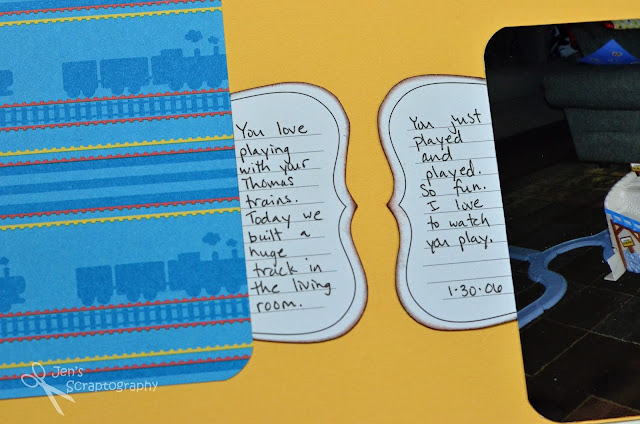 You love
playing
with your
Thomas
trains.
Today we
built a
huge
track in
the living
room.
You just
played
and
played.
So fun.
I love
to watch
you play.
1·30·06
Jen's
Scraptography